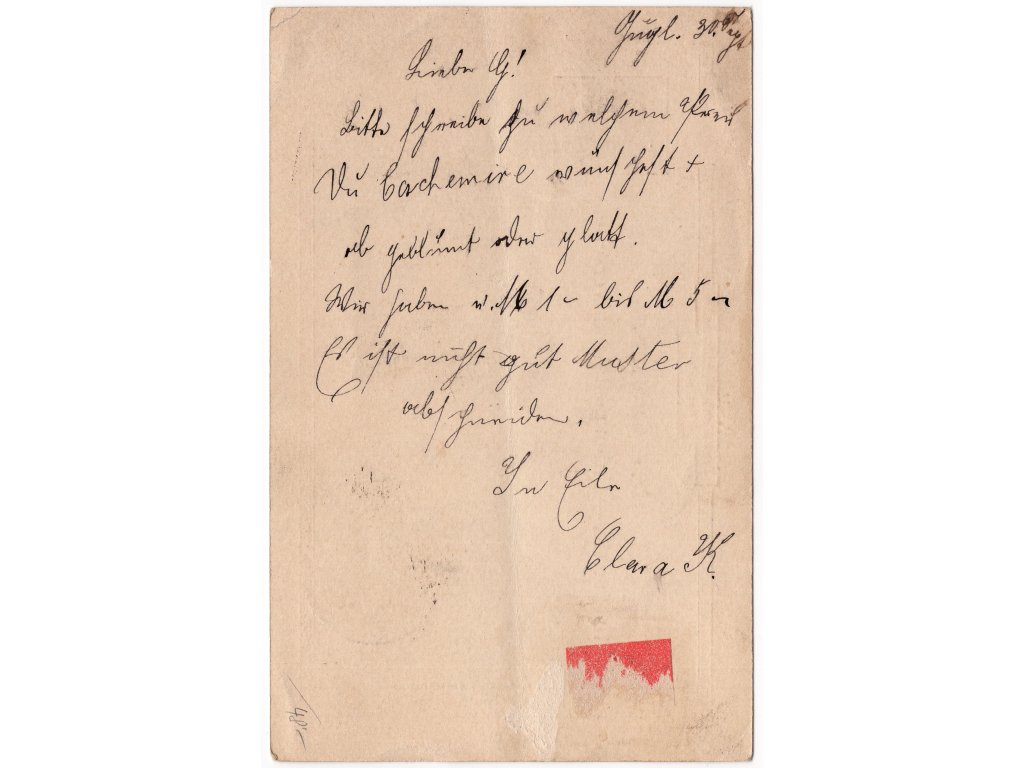 30. Sept
Lieber G!
Bitte schreibe zu welchem Preis
Du Cachemire wünschest +
ob geblümt oder glatt.
Wir haben v. M 1 – bis M 5 –
Es ist nicht gut Muster
abschneiden.
In Eile
Clara K.
48.–